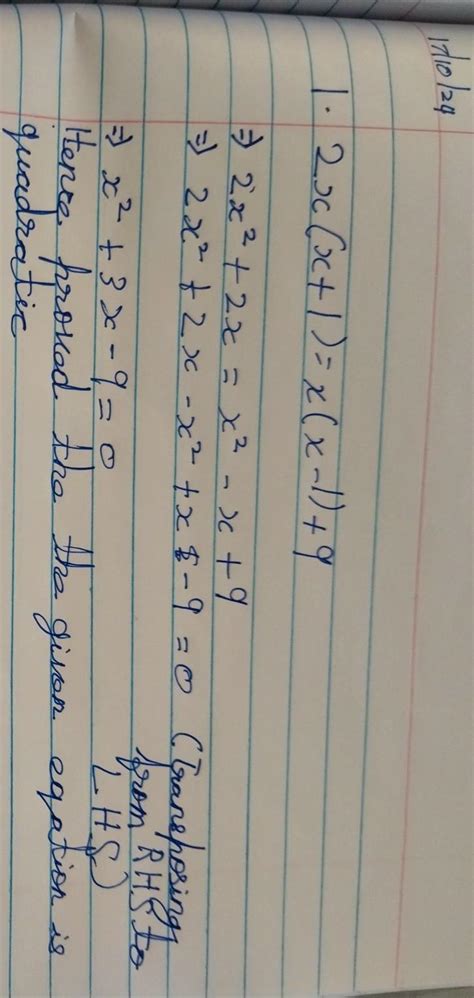 17/10/24
1. 2x(x+1) = x(x-1)+9
⇒ 2x² + 2x = x² - x + 9
⇒ 2x² + 2x - x² + x - 9 = 0 (Transposing
from RHS to
LHS)
⇒ x² + 3x - 9 = 0
Hence proved the the given eqation is
quadratic